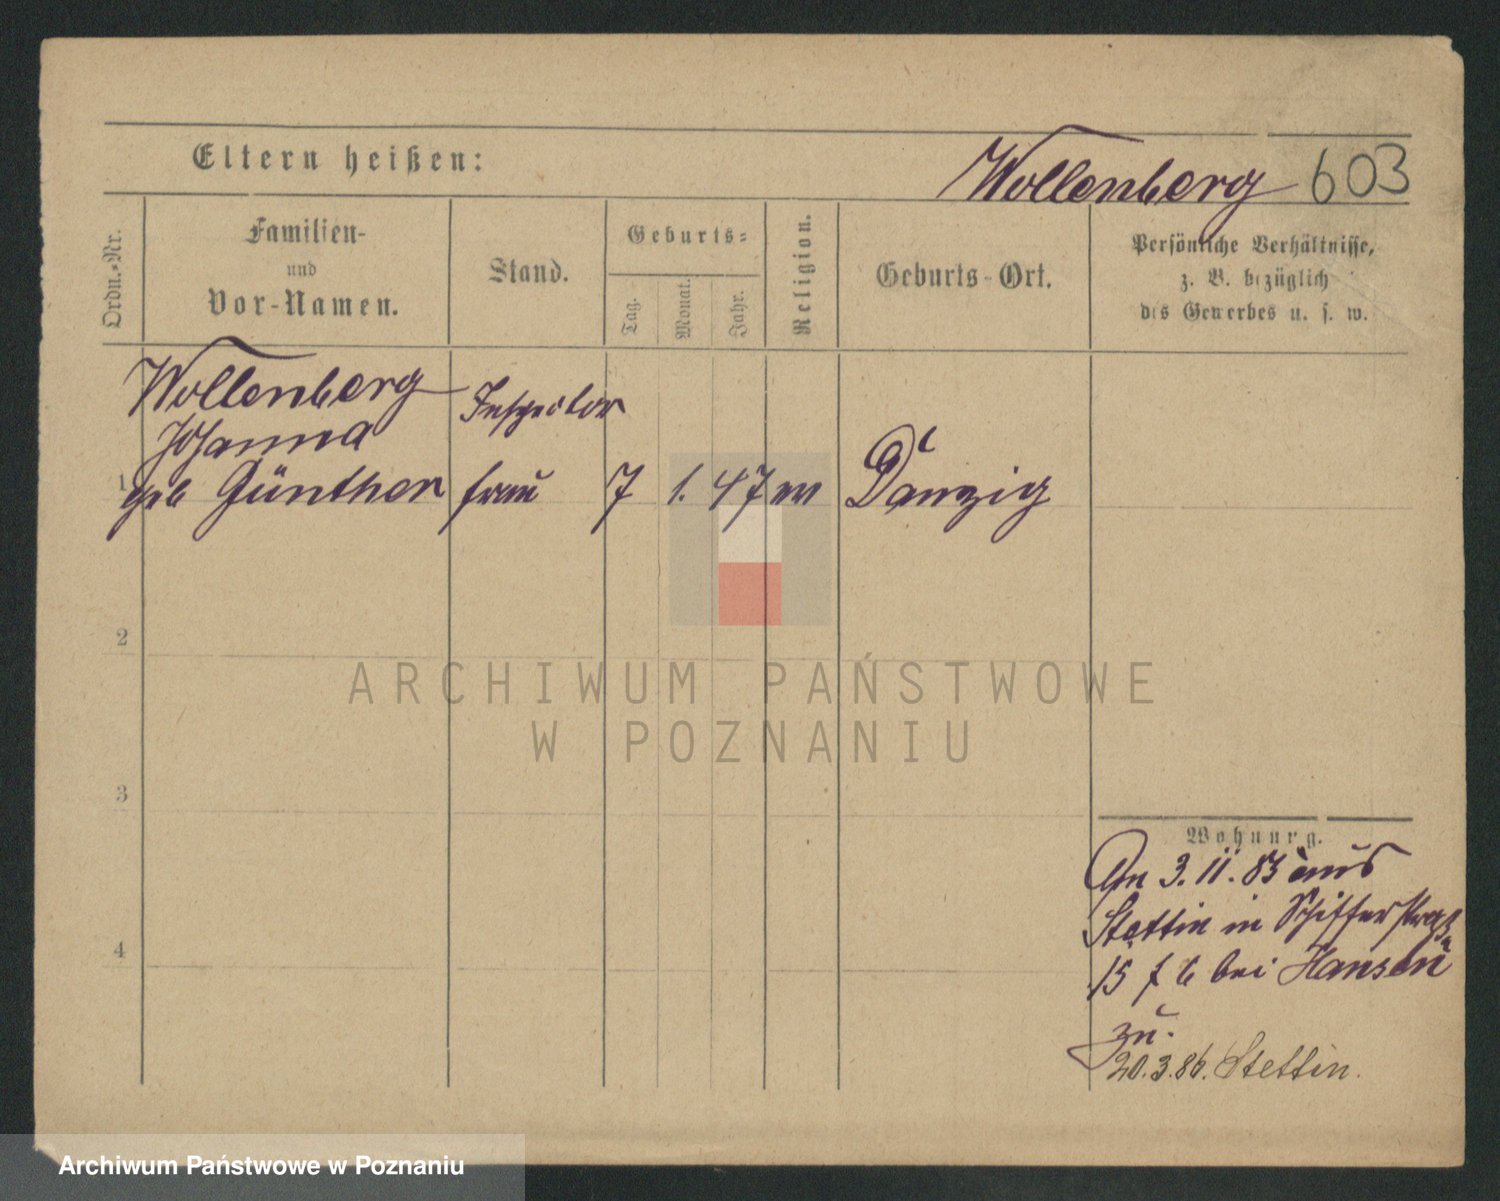 Eltern heißen:
Wollenberg 603
Ordn.-Nr.
Familien-
und
Vor-Namen.
Stand.
Geburts-
Tag.
Monat.
Jahr.
Religion.
Geburts-Ort.
Persönliche Verhältnisse,
z. B. bezüglich
des Gewerbes u. s. w.
Wollenberg
Johanna
1 geb Günther
Inspector
frau
7 1. 47
Danzig
2
3
4
ARCHIWUM PAŃSTWOWE
W POZNANIU
Wohnung.
Am 3. 11. 83 aus
Stettin in Schifferstraß
15 bei Hansen
zu.
20.3.86. Stettin.
Archiwum Państwowe w Poznaniu